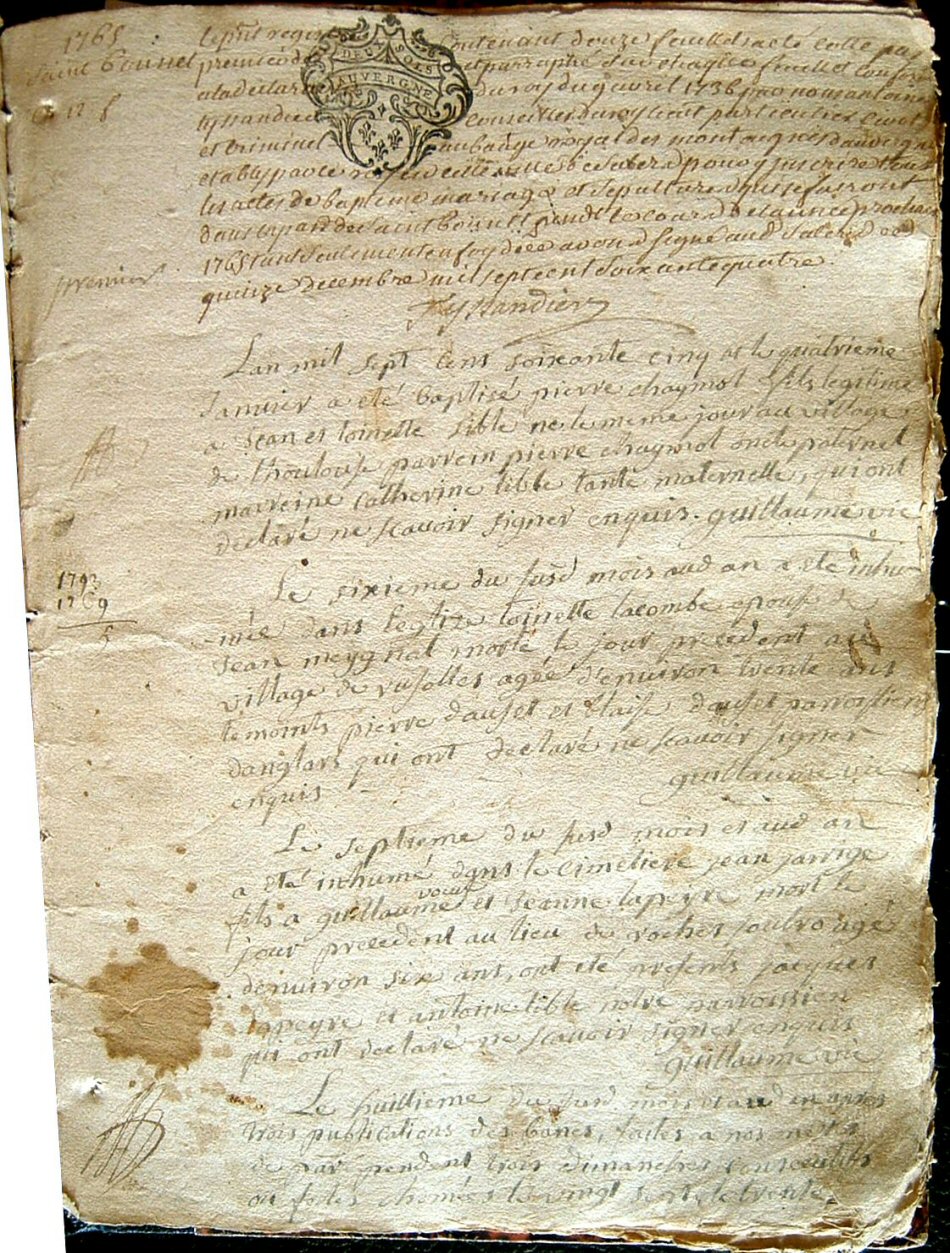 1765
Saint Bonnet
premier
1793
1769
5
DEUX S
AUVERGNE
Le pnt regis contenant douze feuillets a été cotté par
premier de et paraphé Sur chaque feuillet conform
a la declara du roy du 9 avril 1736 par nous antoine
tyssandier Conseiller du roy lieut particulier Civil
et Criminel au bailliage royal des montagnes d'auvergne
etably par le roy en cette ville de Salers pour y inscrire tous
les actes de bapteme mariage et sepulture qui se fairont
dans la par de Saint bonnet pendt le cours de l'année prochaine
1765 tant seulement en foy de ce avons signé aud Salers le
quinze decembre mil sept cent soixante quatre.
Tyssandier
L'an mil sept cens soixante cinq et le quatrieme
Janvier a été baptisé pierre chaymol fils legitime
a Jean et toinette tible né le meme jour au village
de thoulouse parrein pierre chaymol oncle paternel
marreine Catherine tible tante maternelle, qui ont
declaré ne scavoir signer enquis. guillaume vic
Le sixieme du susd mois aud an a été inhu-
mée dans l'eglize toinette lacombe epouse de
Jean meygnal morte le jour precedent au
village de agée d'environ trente ans
temoints pierre dauset et blaise dauset parroissiens
danglars qui ont declaré ne scavoir signer
enquis guillaume vic
Le septieme du susd mois et aud an
a été inhumé dans le Cimetiere jean jarrige
fils a guillaume et Jeanne lapeyre mort le
jour precedent au lieu de rocher soutro agé
d'environ six ans, ont été presents jacques
lapeyre et antoine tible notre parroissien
qui ont declaré ne scavoir signer enquis
guillaume vic
Le huitieme du susd mois et aud an apres
trois publications des bancs, faites a nos messes
de par pendent trois dimanches consecutifs
ou fetes chomées le vingt sept, le trente